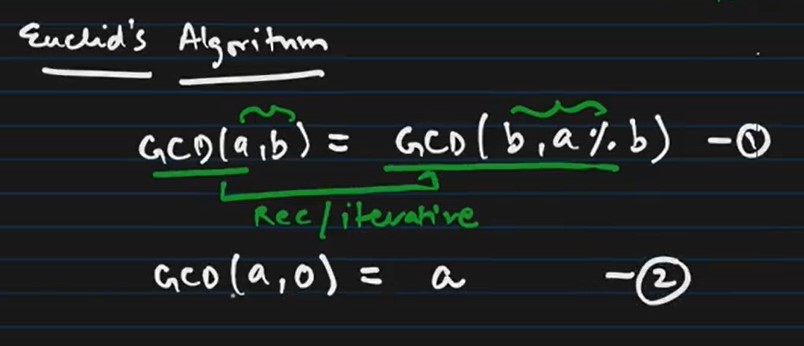 Euclid's Algoritnm
GCD(a,b) = GCD(b, a % b) - ①
Rec/iterative
GCD(a,0) = a - ②